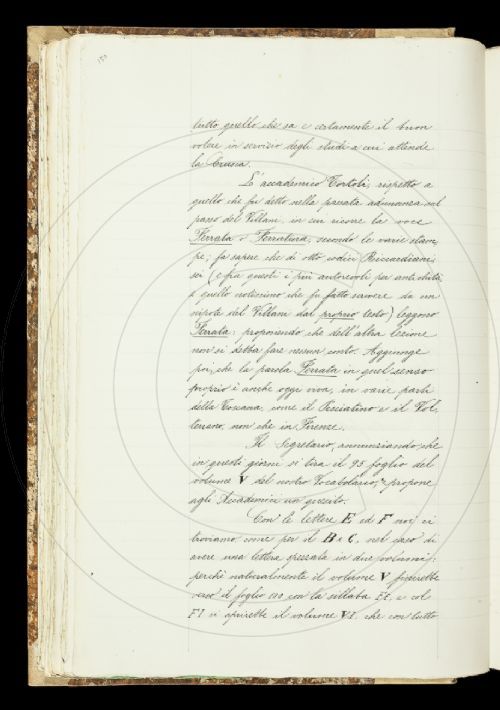 tutto quello che sa e certamente il buon
volere in servizio degli studi a cui attende
la Crusca.
L'accademico Tortoli, rispetto a
quello che fu detto nella passata adunanza sul
passo del Villani, in cui ricorre la voce
Ferrata o Ferratura, secondo le varie stam-
pe; fa sapere che di otto codici Riccardiani
sei (e fra questi i più autorevoli per antichità,
e quello notissimo che fu fatto scrivere da un
nipote del Villani dal proprio testo) leggono
Ferrata; proponendo che dell'altra lezione
non si debba fare nessun conto. Aggiunge
poi, che la parola Ferrata in quel senso
proprio è anche oggi viva, in varie parti
della Toscana, come il Pesciatino e il Vol-
terrano, non che in Firenze.
Il Segretario, annunziando che
in questi giorni si tira il 95 foglio del
volume V del nostro Vocabolario, propone
agli Accademici un quesito.
Con le lettere E ed F noi ci
troviamo, come per il B e C, nel caso di
avere una lettera spezzata in due volumi;
perchè naturalmente il volume V finirebbe
verso il foglio con la sillaba FE, e col
FI si aprirebbe il volume VI, che con tutto